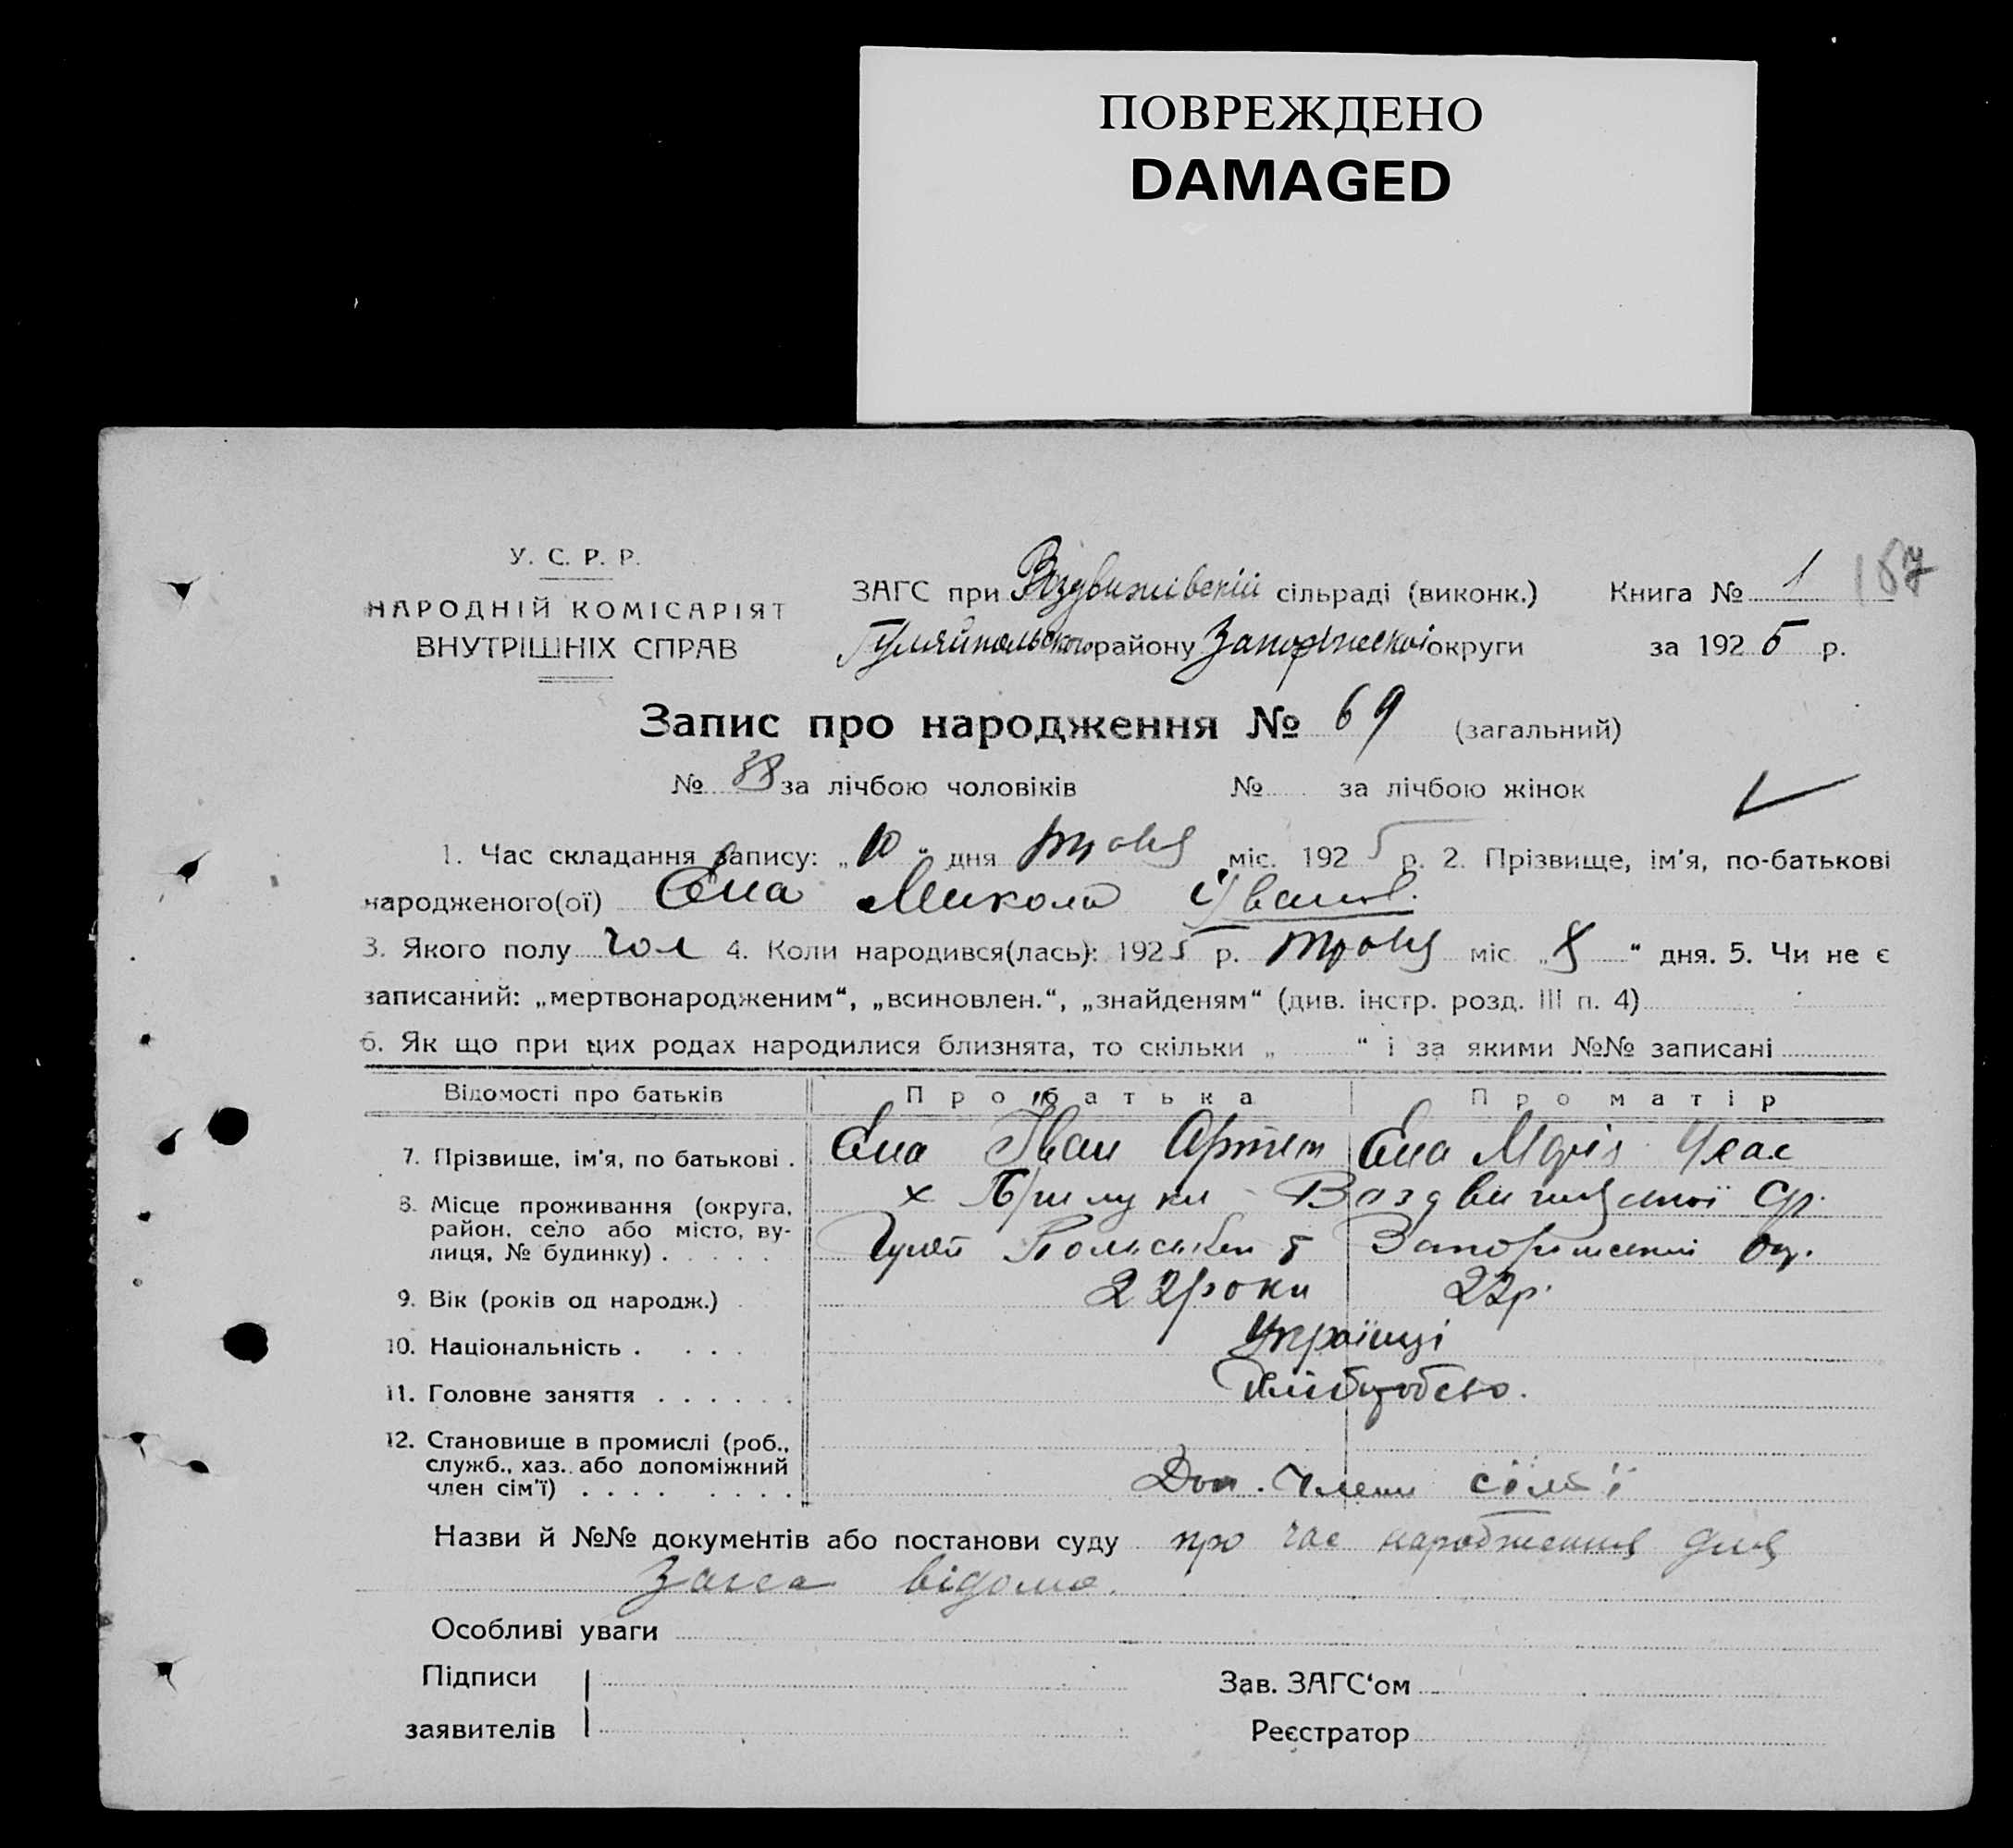 ПОВРЕЖДЕНО
DAMAGED
У. С. Р. Р.
НАРОДНІЙ КОМІСАРІЯТ
ВНУТРІШНІХ СПРАВ
ЗАГС при Воздвижівській сільраді (виконк.) Книга № 1 187
Гуляйпольського району Запоріжської округи за 1925 р.
Запис про народження № 69 (загальний)
№ 38 за лічбою чоловіків № за лічбою жінок
1. Час складання запису: „10“ дня травня міс. 1925 р. 2. Прізвище, ім'я, по-батькові
народженого(ої) Єна Микола Іванов.
3. Якого полу чол 4. Коли народився(лась): 1925 р. травня міс „8“ дня. 5. Чи не є
записаний: „мертвонародженим“, „всиновлен.“, „знайденям“ (див. інстр. розд. III п. 4)
6. Як що при цих родах народилися близнята, то скільки „ “ і за якими №№ записані
Відомості про батьків Про батька Про матір
7. Прізвище, ім'я, по батькові . Єна Іван Артем Єна Марія
8. Місце проживання (округа, х Прилуки Воздвижеської Ср.
район, село або місто, ву-
лиця, № будинку) . . . . . Гуляй Запоріжської Ок.
9. Вік (років од народж.) 22 роки 22 р.
10. Національність . . . . Українці
11. Головне заняття . . . . . . Хліборобство.
12. Становище в промислі (роб.,
служб., хаз. або допоміжний
член сім'ї) . . . . . . . . Доп. члени сім'ї
Назви й №№ документів або постанови суду про час народження для
Загса відомо.
Особливі уваги
Підписи Зав. ЗАГС‘ом
заявителів Реєстратор